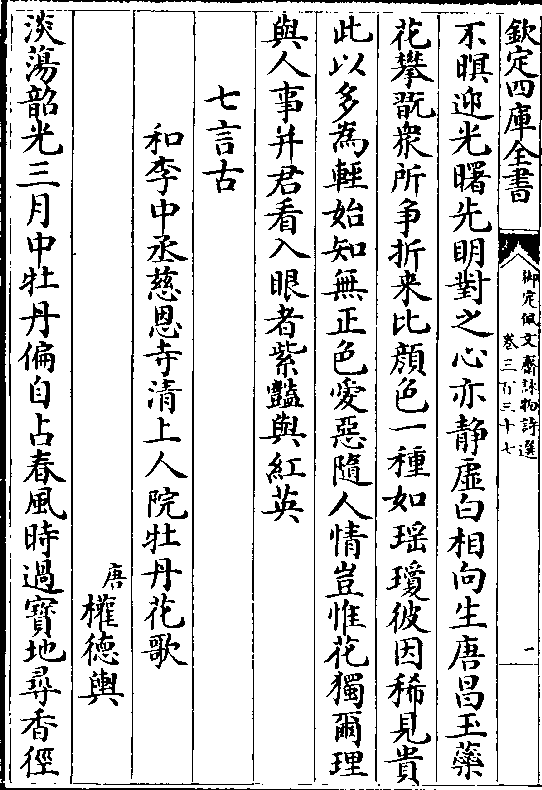 欽定四庫全書
御定佩文齋詠物詩選
卷三百三十七
一
不暝迎光曙先明對之心亦静虛白相向生唐昌玉蘂
花攀翫衆所争折来比顔色一種如瑶瓊彼因稀見貴
此以多為輕始知無正色愛惡隨人情豈惟花獨爾理
與人事并君看入眼者紫豔與紅英
七言古
和李中丞慈恩寺清上人院牡丹花歌
唐 權德輿
淡蕩韶光三月中牡丹偏自占春風時過寶地尋香徑